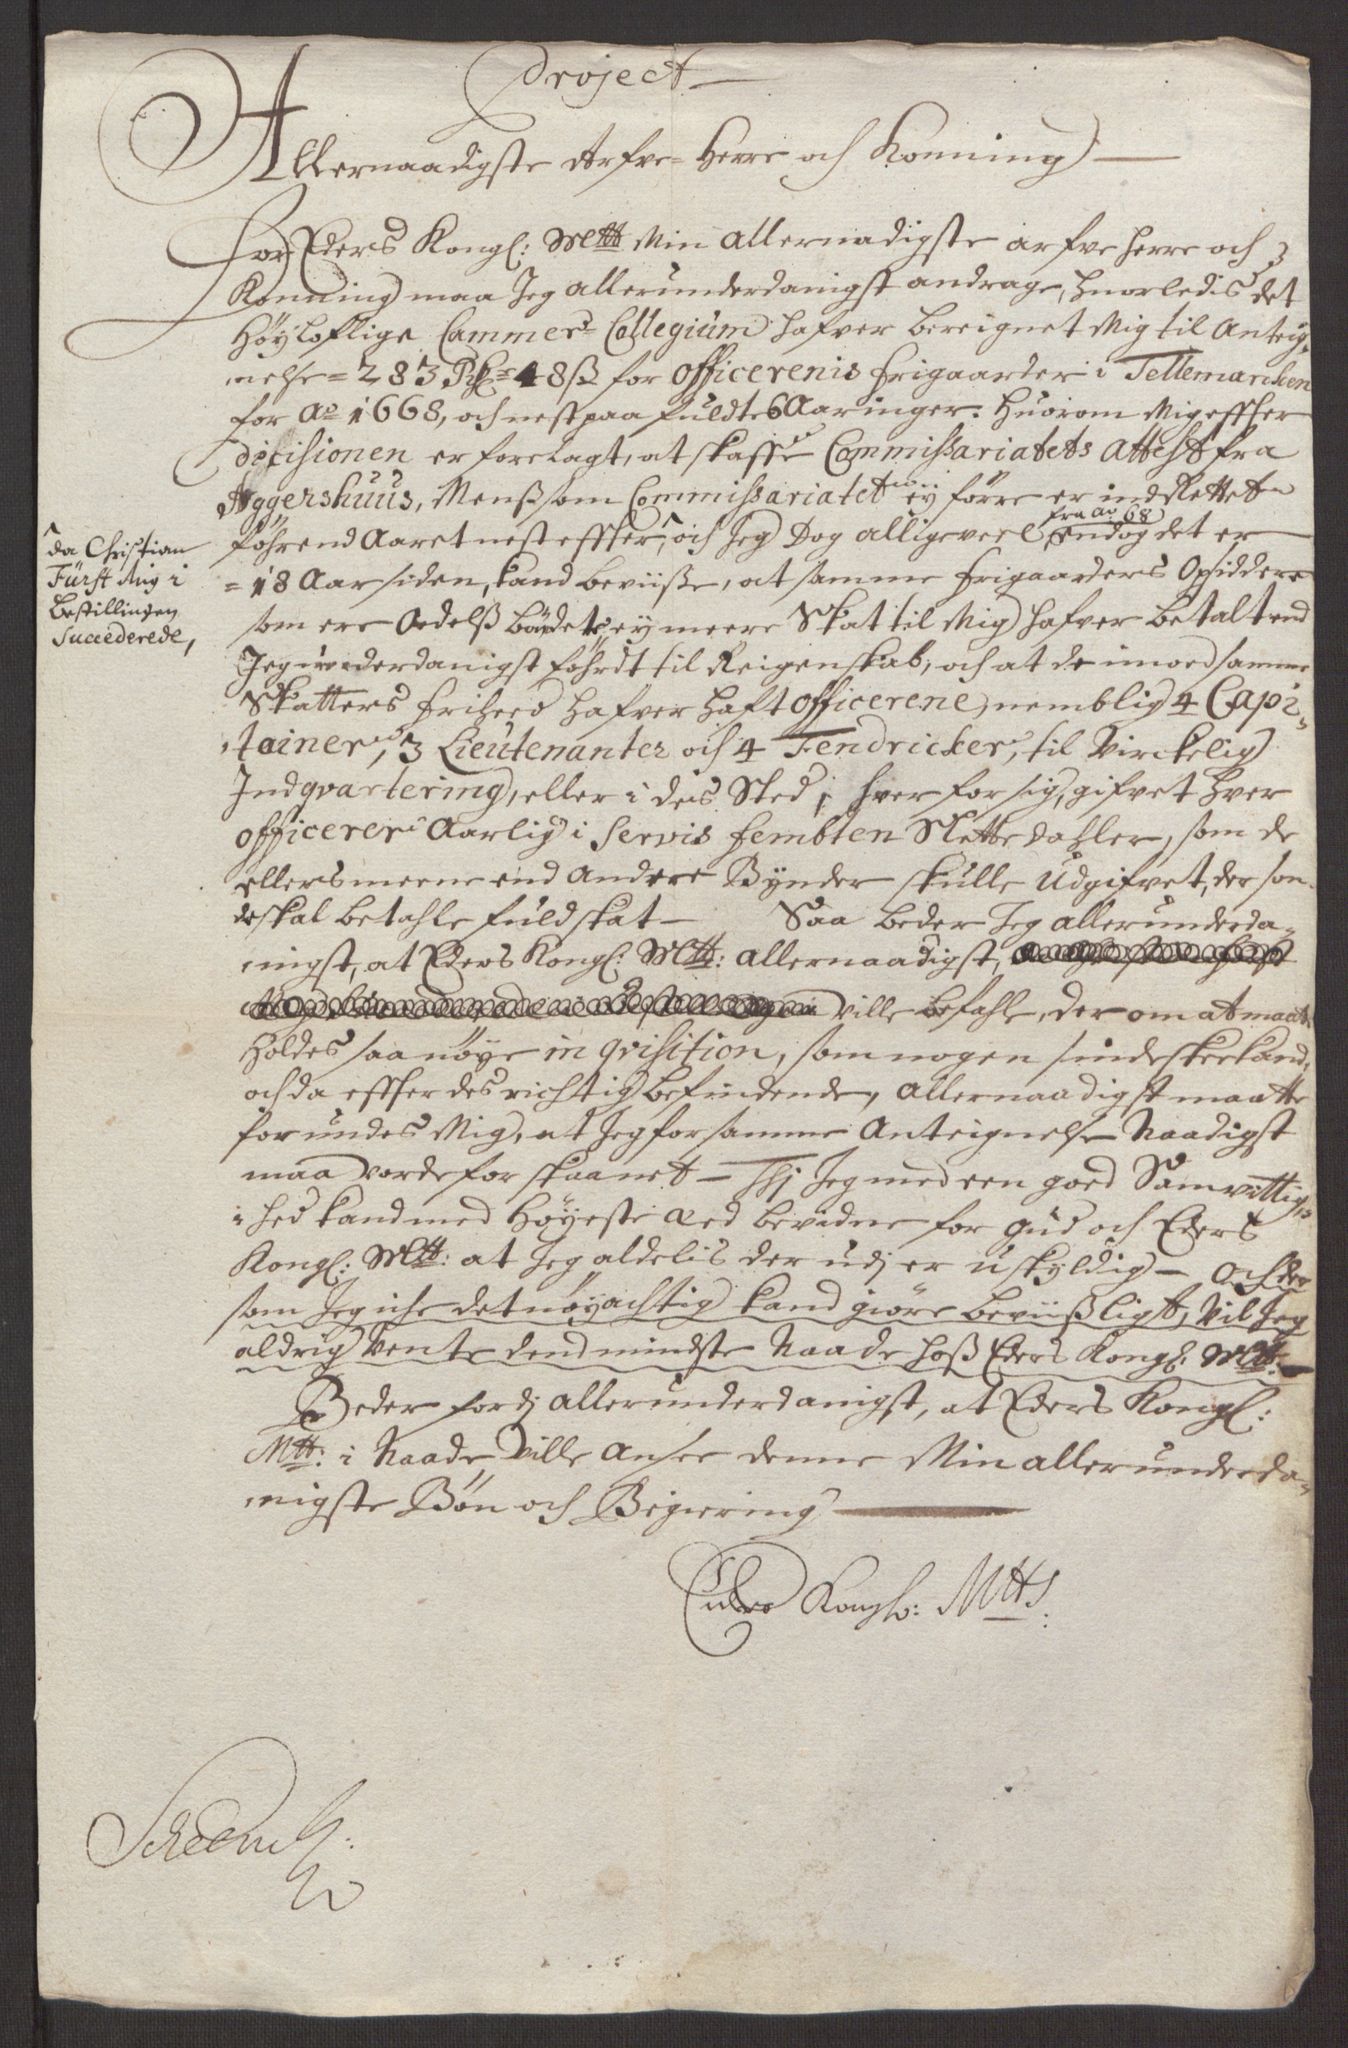 Project
Allernaadigste Arfve-Herre och Konning
For Eders Kongl: Mtt Min Allernadigste arfve Herre och
Konning maa Jeg allerunderdanigst andrage, huorledis det
Høyloflige Cammer-Collegium hafver bereignet Mig til Anteig-
nelse = 283 Rdr = 48 ß for Officerenis frigaarder i Tellemarcken
for Ao 1668, och nestpaafuldte 6 Aaringer. Huorom Mig effter
decisionen er forelagt, at skaffe Commissariatets Attest fra
Aggershuus, Menß som Commissariatet ey førre er indRettet
føhrend Aaret nest effter, och Jeg dog alligeveel fra Ao 68 endog det er
da Christian
Fürst Mig i
Bestillingen
Succederede,
= 18 Aar siden, kand beviiße, at samme frigaarders Opsiddere
som ere Odelß bønder, ey meere Skat til Mig hafver betalt end
Jeg underdanigst føhrdt til Reigenskab, och at de imoed samme
Skatters friheed hafver haft Officerene, nemblig 4 Capi-
tainer, 3 Lieutenanter och 4 Fendricker, til Virckelig
Indqvartering, eller i deis Sted, hver for sig, gifvet hver
Officerer Aarlig i Servis fembten Slette daller, som de
ellers meere end Andre Bønder skulle Udgifvet, der som
de skal betahle fuld skat — Saa beder Jeg allerunderda-
nigst, at Eders Kongl: Mtt: allernaadigst,
ville befahle, der om at maatte
holdes saa nøye inqvisition, som nogen sinde skee kand,
och da effter des richtig befindende, allernaadigst maatte
forundes Mig, at Jeg for samme Anteignelse Naadigst
maa vorde forskaanet — Thj Jeg med een goed Samvittig-
hed kand med høyeste æed bevidne for Gud och Eders
Kongl: Mtt: at Jeg aldelis der udj er uskyldig — Och der
som Jeg iche det nøyachtig kand giøre beviißligt, vil Jeg
aldrig vente dend mindste Naade hoß Eders Kongl: Mtt:
Beder fordj allerunderdanigst, at Eders Kongl:
Mtt: i Naade ville ansee denne Min allerunderda-
nigste Bøn och Begiering
Eders Kongl: Mtts